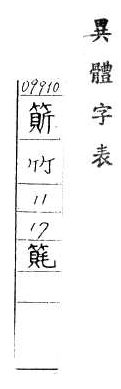 異體字表
09910
竹
11
17